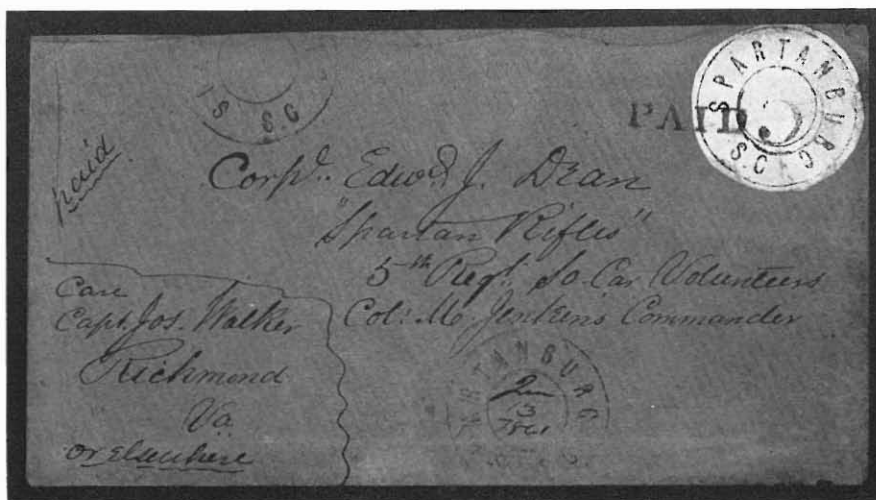 S S.C
SPARTANBURG S.C.
PAID 5
paid
Corpl. Edwd. J. Dean
"Spartan Rifles"
5th Regt. So. Car. Volunteers
Col: M. Jenkins Commander
Care
Capt. Jos. Walker
Richmond
Va
or Elsewhere
ARTANBURG
13
1861